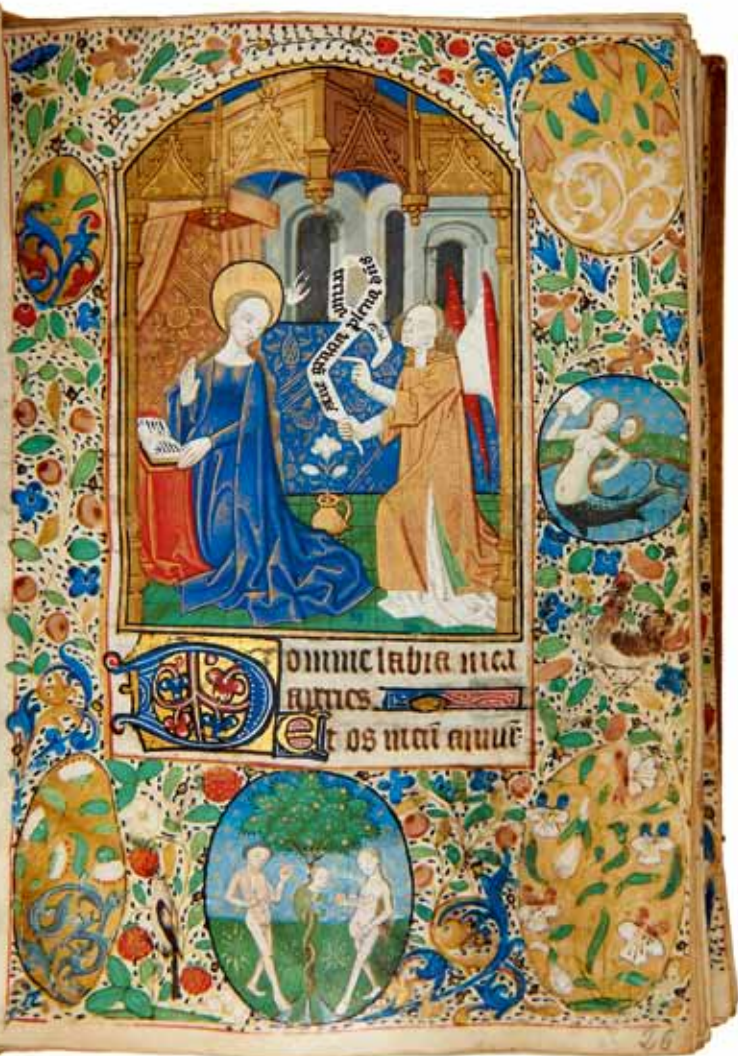 aue gracia plena dns
Domine labia mea
aperies
Et os meū annun
26